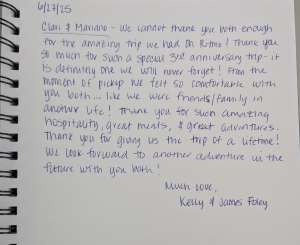 6/27/25
Clari & Mariano - We cannot thank you both enough
for the amazing trip we had on Ritmo! Thank you
so much for such a special 3rd anniversary trip - it
is definitely one we will never forget! From the
moment of pickup we felt so comfortable with
you both... like we were friends/family in
another life! Thank you for such amazing
hospitality, great meals, & great adventures.
Thank you for giving us the trip of a lifetime!
We look forward to another adventure in the
future with you both!
Much Love,
Kelly & James Foley